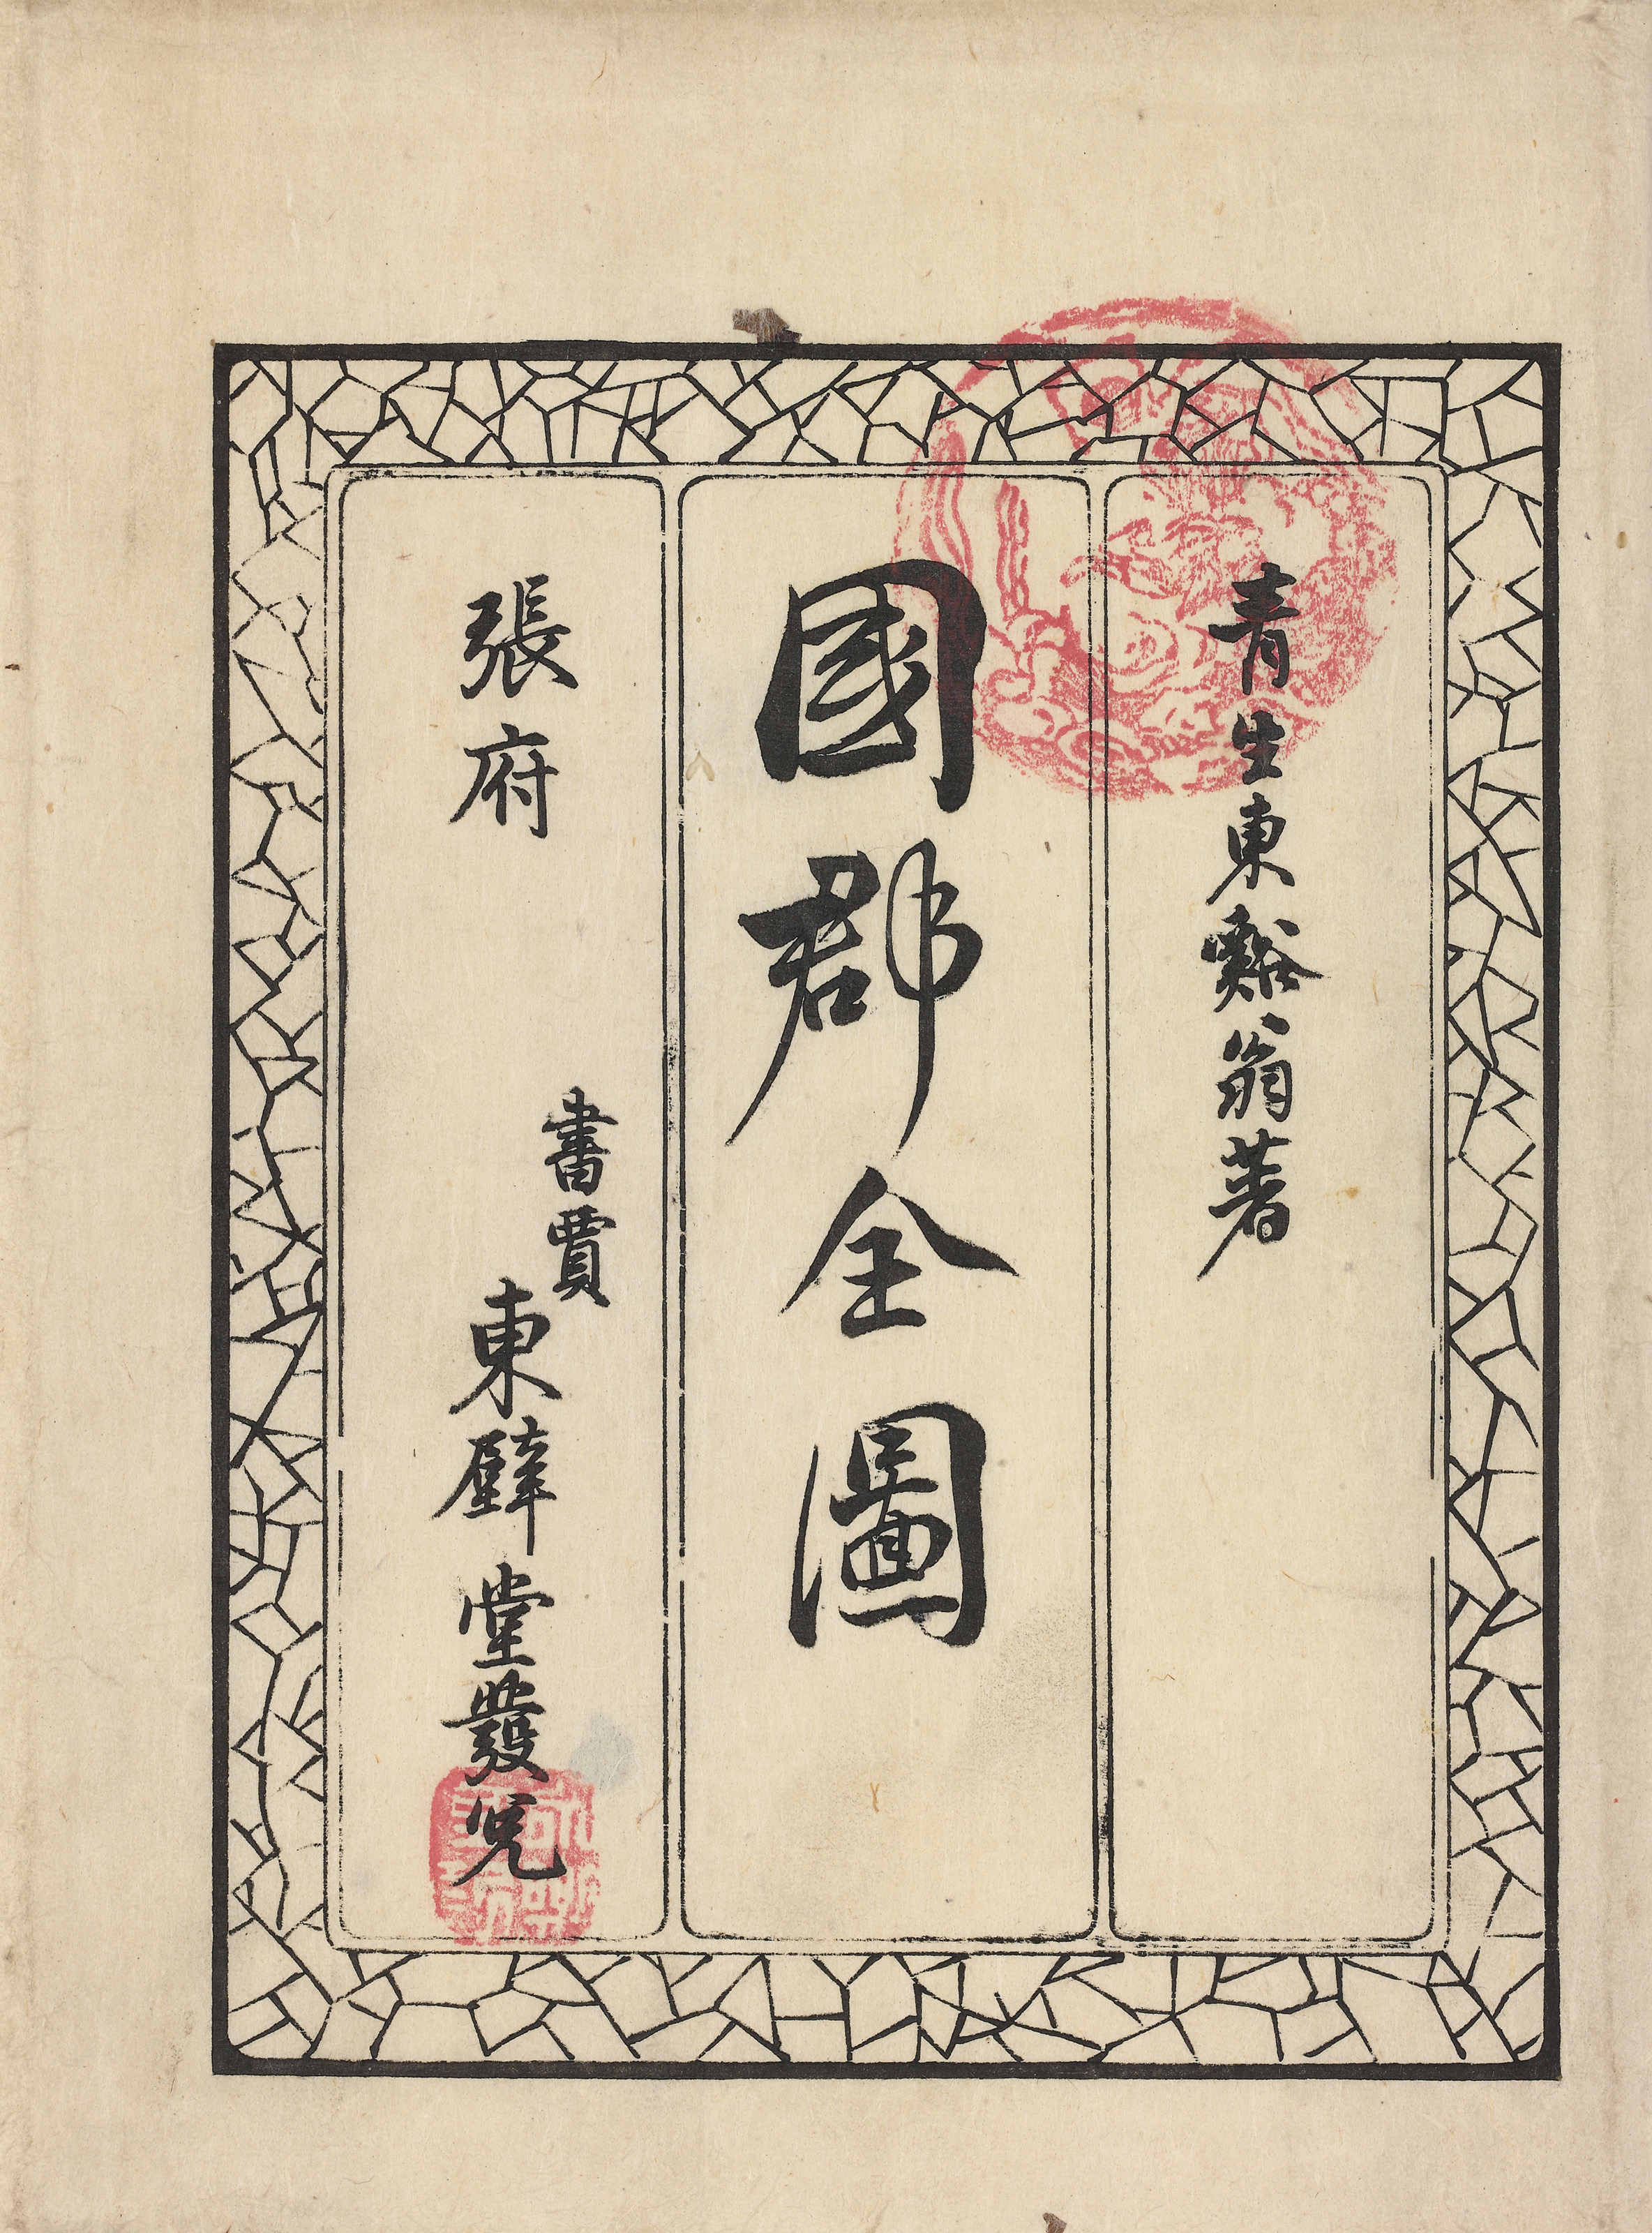 青生東谿翁著
國郡全圖
張府
書賈
東壁堂發兌